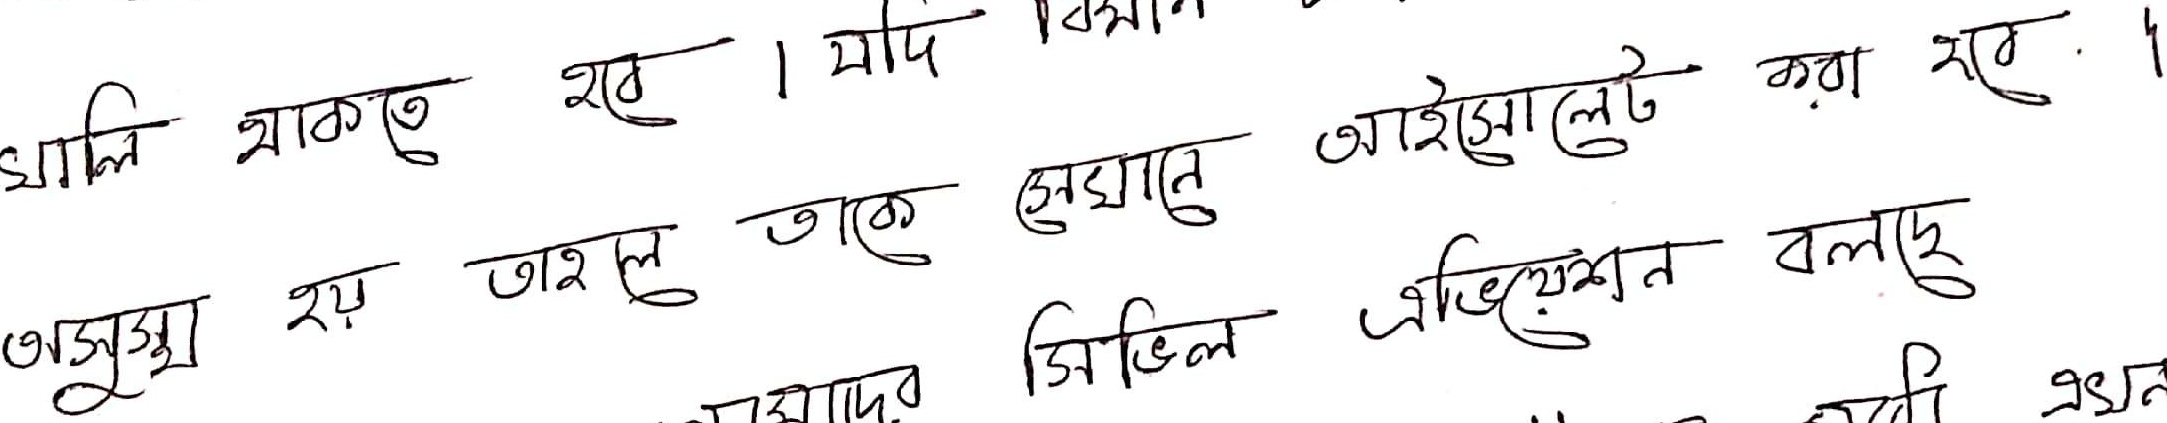 খালি থাকতে হবে । যদি বিমান
অসুস্থ হয় তাহলে তাকে সেখানে আইসোলেট করা হবে । 
সিভিল এভিয়েশন বলছে
এখন